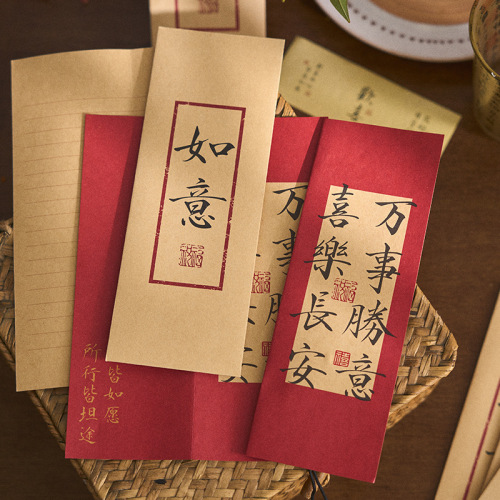 如意
万事勝意
喜樂長安
万事
皆如愿
所行皆坦途